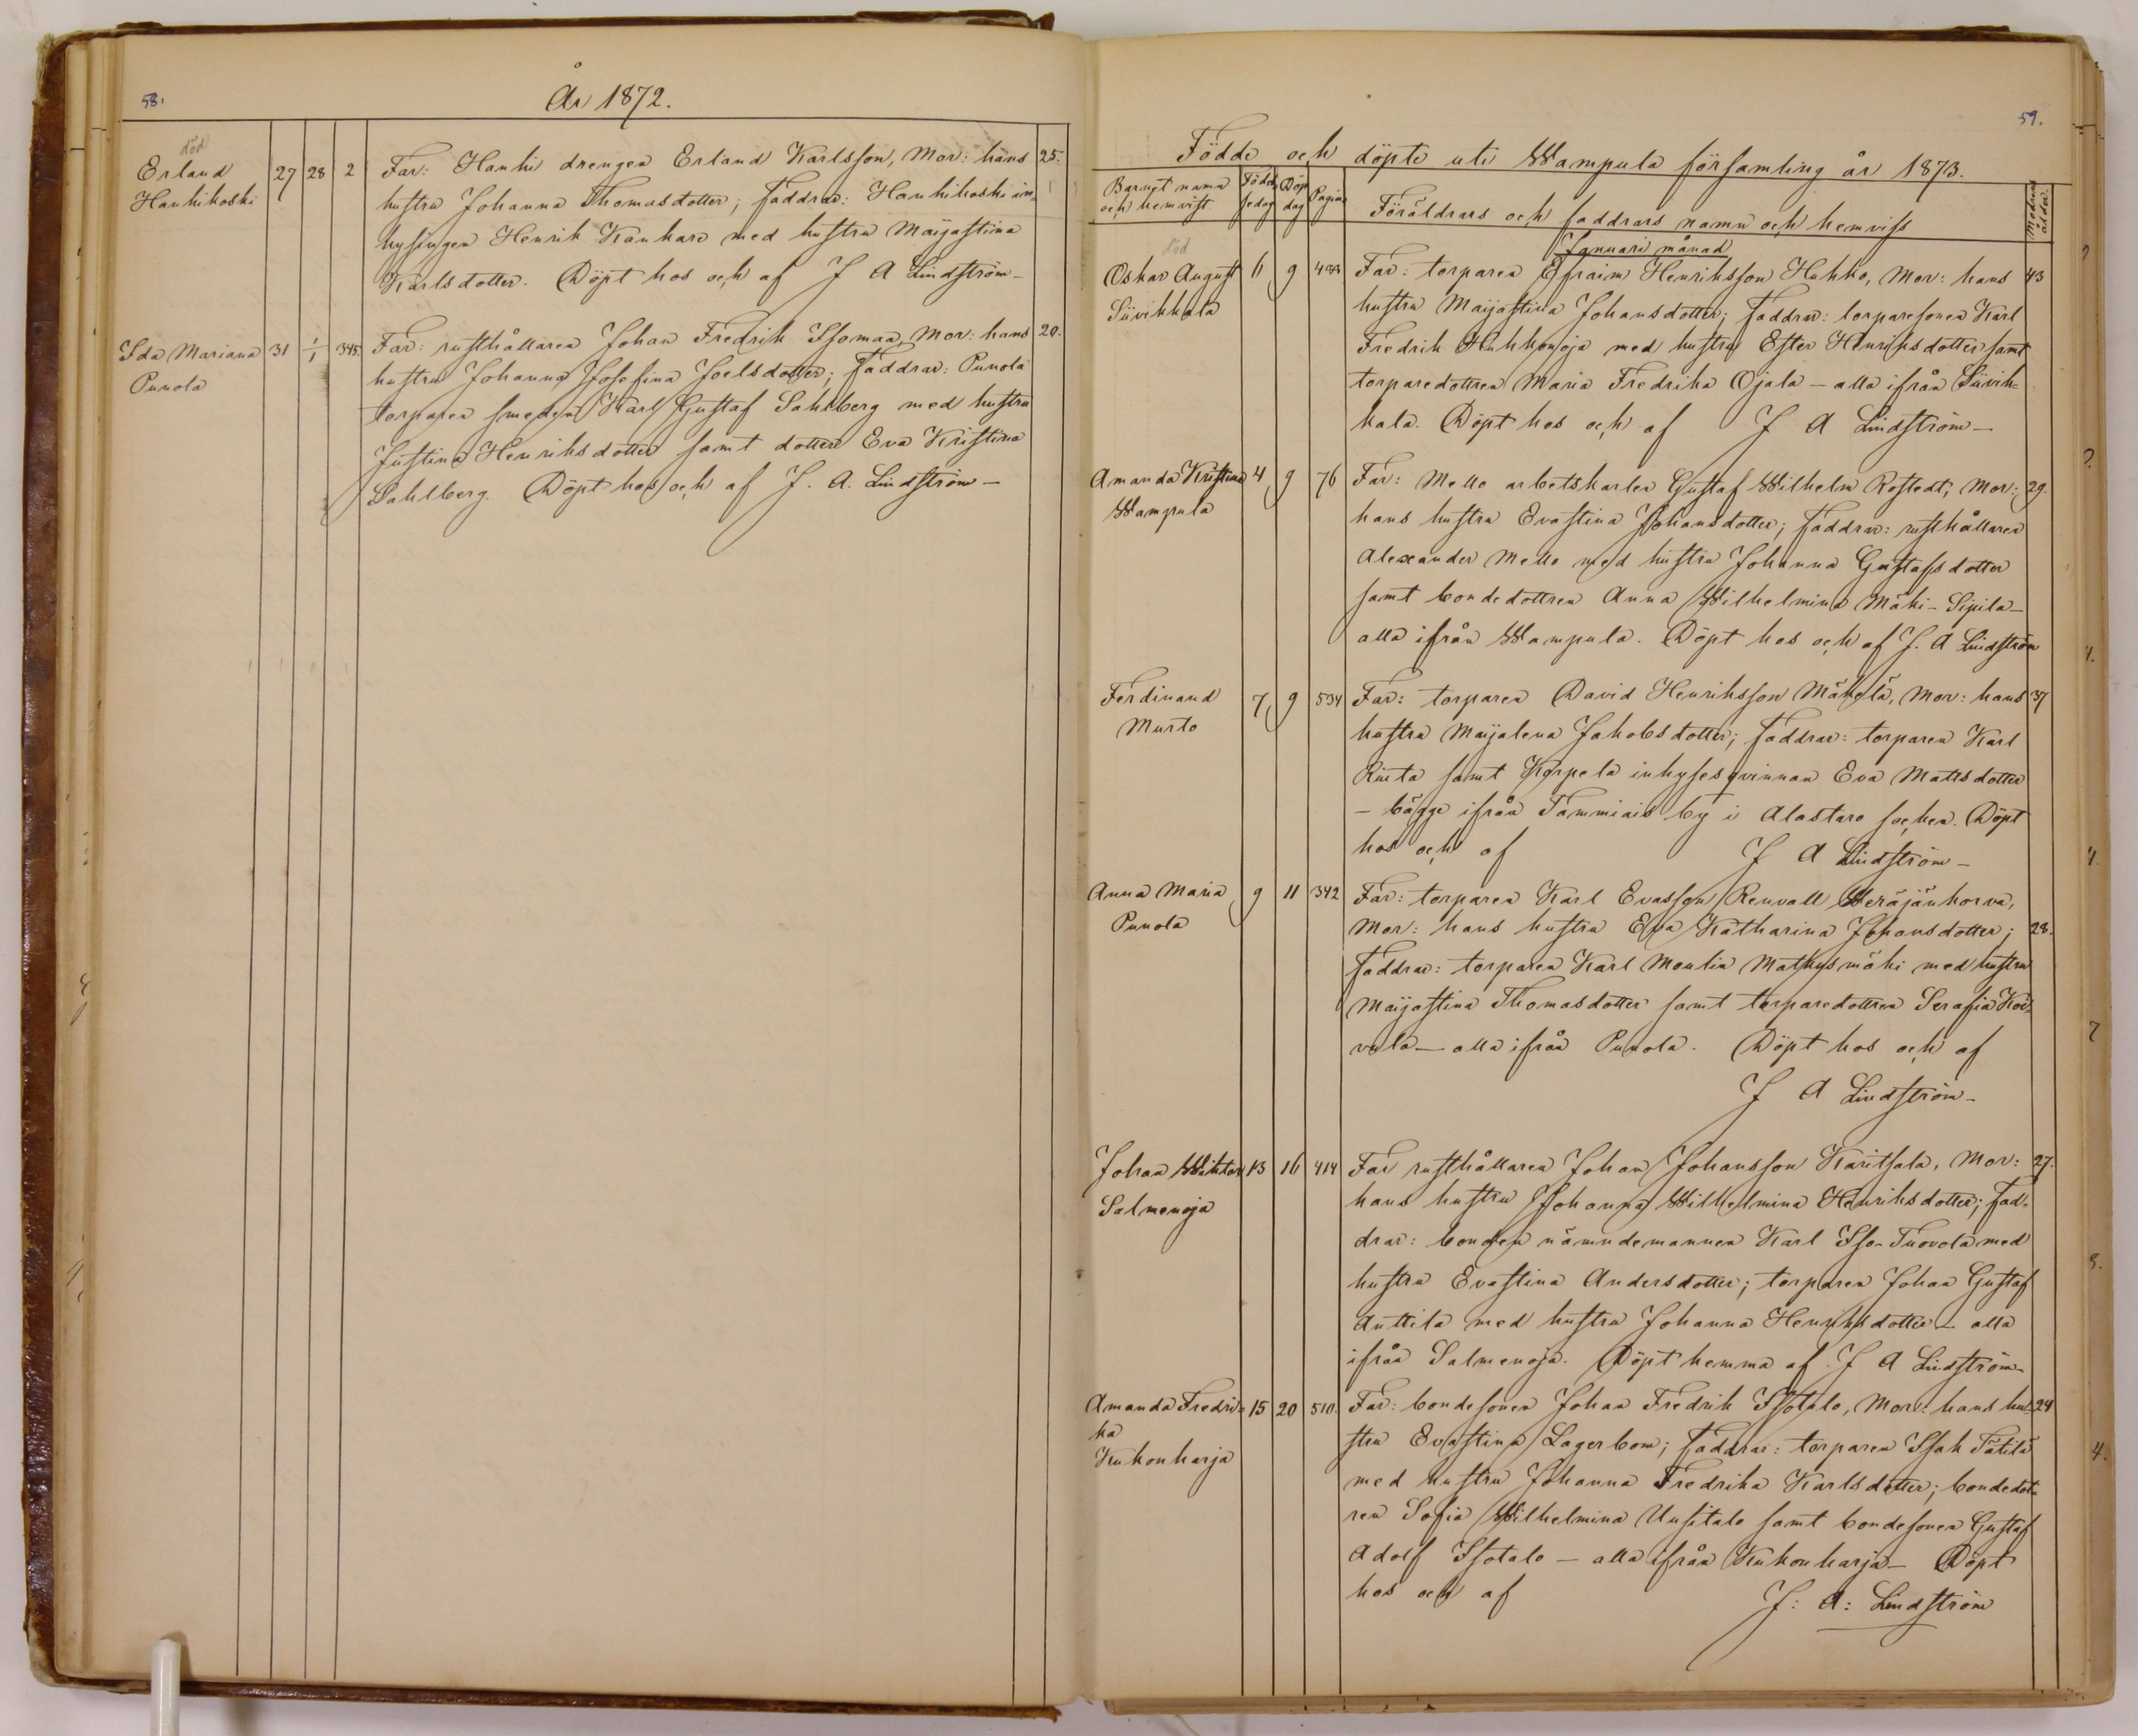 58.
År 1872.
död
Erland
Hanhikoski
27 28 2
Far: Hanhi drengen Erland Karlsson, Mor: hans 25.
hustru Johanna Thomasdotter; Faddrar: Hanhikoski in-
hysingen Henrik Kankare med hustru Maijastina
Karlsdotter. Döpt hos och af J A Lindström—
Ida Mariana 31 1/1 345.
Punola
Far: rusthållaren Johan Fredrik Isomaa, Mor: hans 20.
hustru Johanna Josefina Joelsdotter; Faddrar: Punola
torparen smeden Karl Gustaf Sahlberg med hustru
Justina Henriksdotter samt dotter Eva Kristina
Sahlberg. Döpt hos och af J. A. Lindström—
59.
Födde och döpte uti Wampula församling år 1873.
Barnets namn
och hemvist.
Födel
sedag
Döp
dag
Pagina
Föräldrars och faddrars namn och hemvist
Modrens
ålder.
Januari månad
död
Oskar August 6 9
Siivikkala
Far: torparen Efraim Henriksson Huhko, Mor: hans 43
hustru Maijastina Johansdotter; Faddrar: torparesonen Karl
Fredrik Huhkonoja med hustru Ester Henriksdotter samt
torparedottren Maria Fredrika Ojala — alla ifrån Siivik-
kala. Döpt hos och af J A Lindström—
Amanda Kristina 4 9 76
Wampula
Far: Mello arbetskarlen Gustaf Wilhelm Rostedt, Mor: 29.
hans hustru Evastina Johansdotter; Faddrar: rusthållaren
Alexander Mello med hustru Johanna Gustafsdotter
samt bondedottren Anna Wilhelmina Mäki-Sipila—
alla ifrån Wampula. Döpt hos och af J. A Lindström
Ferdinand 7 9 534
Murto
Far: torparen David Henriksson Mäkelä, Mor: hans 37
hustru Maijalena Jakobsdotter; Faddrar: torparen Karl
Rinta samt Korpela inhysesqvinnan Eva Mattsdotter
— bägge ifrån Tammiais by i Alastaro socken. Döpt
hos och af J A Lindström—
Anna Maria 9 11 342
Punola
Far: torparen Karl Evasson Renvall Weräjänkorva,
Mor: hans hustru Eva Katharina Johansdotter; 28.
Faddrar: torparen Karl Moulin Matkusmäki med hustru
Maijastina Thomasdotter samt torparedottren Serafia Koi-
vula— alla ifrån Punola. Döpt hos och af
J A Lindström—
Johan Wihtor 13 16 414
Salmenoja
Far rusthållaren Johan Johansson Karitsala, Mor: 27.
hans hustru Johanna Wilhelmina Henriksdotter; Fad-
drar: bonden nämndemannen Karl Iso-Tuovola med
hustru Evastina Andersdotter; torparen Johan Gustaf
Anttila med hustru Johanna Henriksdotter — alla
ifrån Salmenoja. Döpt hemma af J A Lindström—
Amanda Fredri- 15 20 510.
ka
Kukonharja
Far: bondesonen Johan Fredrik Isotalo, Mor: hans hu- 24
stru Evastina Lagerbom; Faddrar: torparen Isak Tätilä
med hustru Johanna Fredrika Karlsdotter; bondedot-
ren Sofia Wilhelmina Uusitalo samt bondesonen Gustaf
Adolf Isotalo — alla ifrån Kukonharja— Döpt
hos och af J: A: Lindström